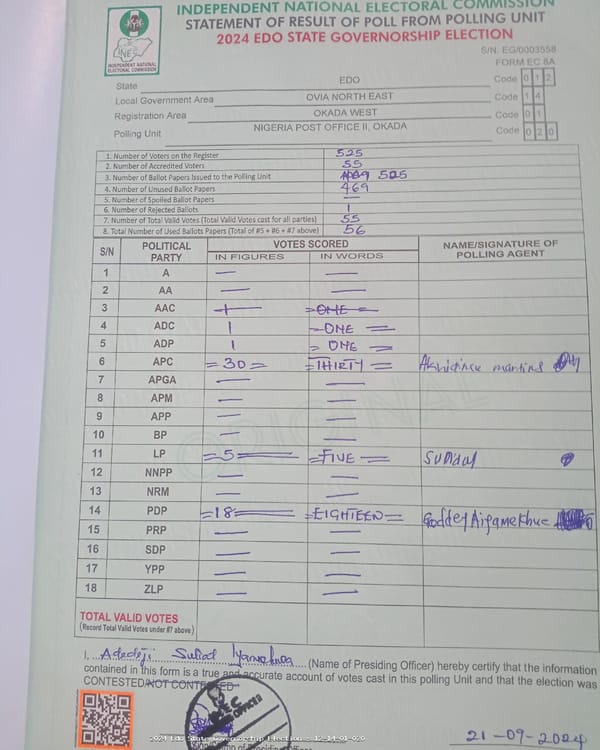 INDEPENDENT NATIONAL ELECTORAL COMMISSION
STATEMENT OF RESULT OF POLL FROM POLLING UNIT
2024 EDO STATE GOVERNORSHIP ELECTION
INEC
INDEPENDENT NATIONAL
ELECTORAL COMMISSION
S/N. EG/0003558
FORM EC 8A
State EDO Code 0 1 2
Local Government Area OVIA NORTH EAST Code 1 4
Registration Area OKADA WEST Code 0 1
Polling Unit NIGERIA POST OFFICE II, OKADA Code 0 2 0
1. Number of Voters on the Register 525
2. Number of Accredited Voters 55
3. Number of Ballot Papers Issued to the Polling Unit 525
4. Number of Unused Ballot Papers 469
5. Number of Spoiled Ballot Papers —
6. Number of Rejected Ballots 1
7. Number of Total Valid Votes (Total Valid Votes cast for all parties) 55
8. Total Number of Used Ballots Papers (Total of #5 + #6 + #7 above) 56
S/N POLITICAL PARTY VOTES SCORED NAME/SIGNATURE OF POLLING AGENT
IN FIGURES IN WORDS
1 A — —
2 AA — —
3 AAC 1 =ONE=
4 ADC 1 –ONE=
5 ADP 1 =ONE=
6 APC =30= =THIRTY=
7 APGA — —
8 APM — —
9 APP — —
10 BP — —
11 LP =5= =FIVE= Sunday
12 NNPP — —
13 NRM — —
14 PDP =18= =EIGHTEEN=
15 PRP — —
16 SDP — —
17 YPP — —
18 ZLP — —
TOTAL VALID VOTES
(Record Total Valid Votes under #7 above)
I, Adedeji (Name of Presiding Officer) hereby certify that the information
contained in this form is a true and accurate account of votes cast in this polling Unit and that the election was
CONTESTED/NOT CONTESTED
21-09-2024